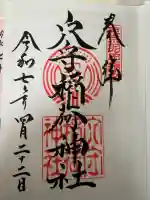 奉拝
穴守稲荷神社
令和七年四月二十二日